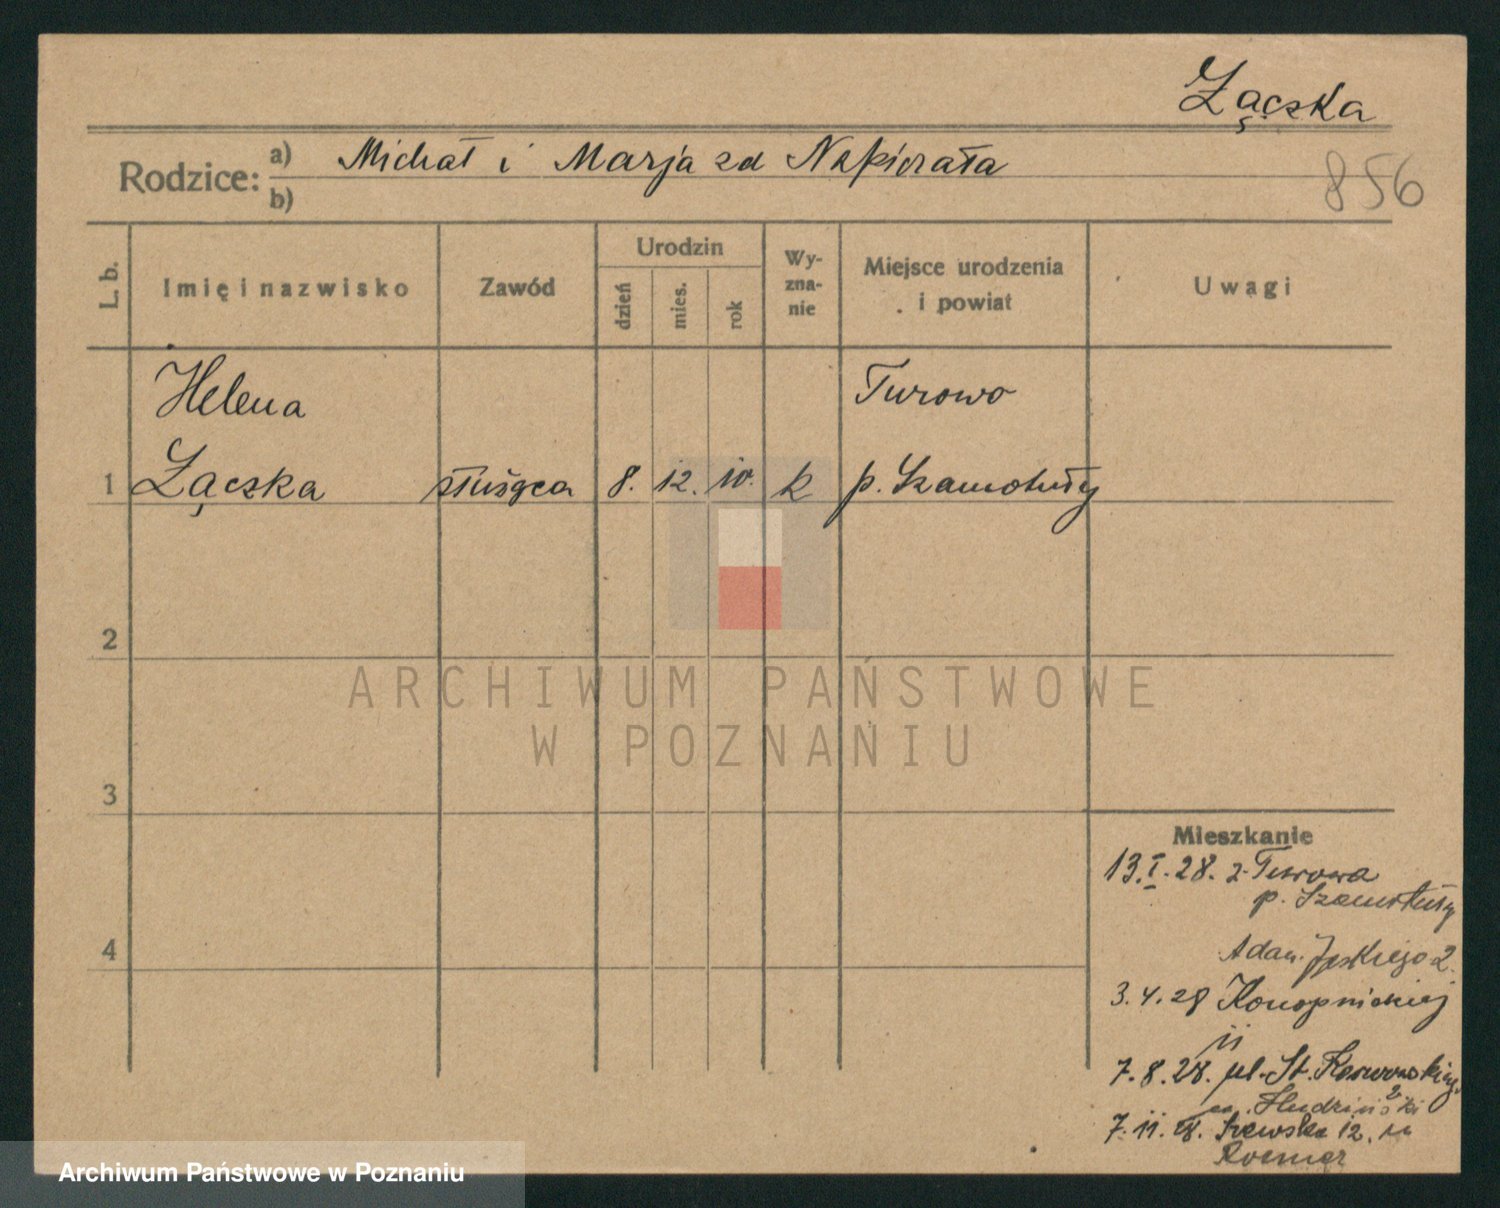 Łączka
Rodzice:
a) Michał i Marja zd Napierała
b)
856
L. b.
Imię i nazwisko
Zawód
Urodzin
dzień
mies.
rok
Wy-
zna-
nie
Miejsce urodzenia
i powiat
Uwagi
Helena
Turowo
1 Łączka służąca 8. 12. 10. k p. Szamotuły
2
ARCHIWUM PAŃSTWOWE
W POZNANIU
3
Mieszkanie
13.I.28. z Turowa
p. Szamotuły
4
Jeskiego 2.
3.4.28 Konopnickiej
11
7.8.28. pl. St.
2
7.11.28. Szewska 12. u
Roemer
Archiwum Państwowe w Poznaniu